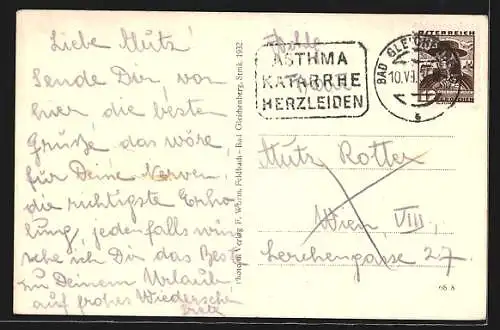 Liebe Mutz!
Sende Dir, von
hier die besten
Grüsse, das wäre
für Deine Nerven
die richtigste Erho-
lung, jedenfalls wün-
sche ich Dir das Beste
zu Deinem Urlaub,
auf frohes Wiedersehen
Photogr. u. Verlag F. Wurm, Feldbach - Bad Gleichenberg, Strmk. 1932
ASTHMA
KATARRHE
HERZLEIDEN
BAD GLEICHEN
10.VII.
ÖSTERREICH
Mutz Rotter
Wien VIII.
Lerchengasse 27.